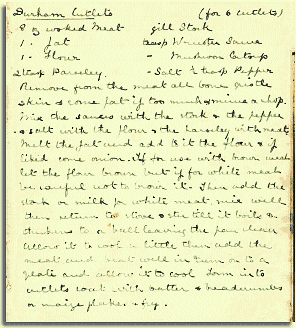 Durham Cutlets (for 6 cutlets)
8 oz cooked Meat gill Stock
1 - fat teasp Worcester Sauce
1 - Flour - Mushroom Catsup
2 teasp Parsley. - Salt ½ teasp Pepper
Remove from the meat all bone gristle
skin & some fat if too much & mince or chop.
Mix the sauces with the stock & the pepper
& salt with the flour & the parsley with meat
Melt the fat and add to it the flour & if
liked some onion. If for use with brown meat
let the flour brown but if for white meat
be careful not to brown it. Then add the
stock or milk for white meat, mix well
then return to stove & stir till it boils &
thickens to a ball leaving the pan clean
Allow it to cool a little then add the
meat and beat well in Turn on to a
plate and allow it to cool Form into
cutlets coat with batter & breadcrumbs
or maize flakes. & fry.